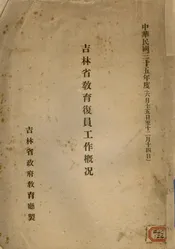 中華民國三十五年度(六月十五日至十二月十四日)
吉林省教育復員工作概況
吉林省政府教育廳製